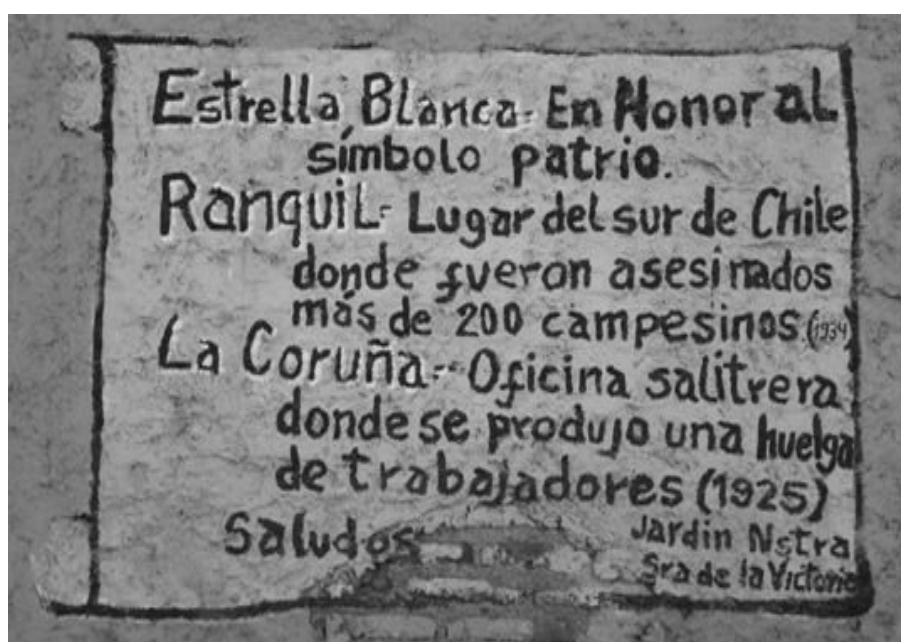 Estrella Blanca- En Honor al
símbolo patrio.
Ranquil- Lugar del sur de Chile
donde fueron asesinados
más de 200 campesinos.(1934)
La Coruña.- Oficina salitrera
donde se produjo una huelga
de trabajadores (1925)
Saludos Jardin Nstra
Sra de la Victoria